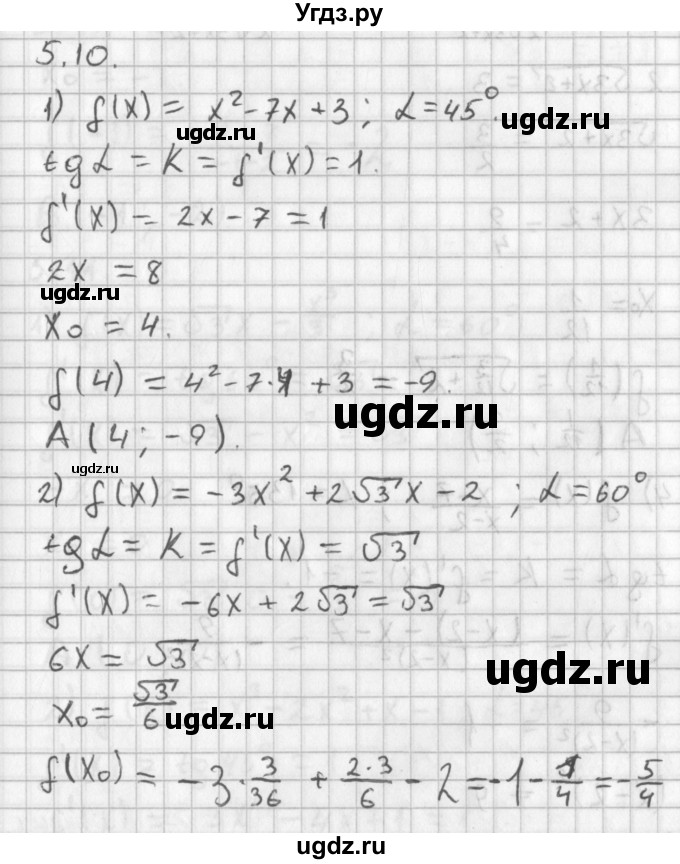 Угдз.ру
5.10.
1) f(x) = x² - 7x + 3; α = 45°.
ugdz.ru
tg α = K = f'(x) = 1.
f'(x) = 2x - 7 = 1
2x = 8
ugdz.ru
x₀ = 4.
f(4) = 4² - 7·4 + 3 = -9.
ugdz.ru
A (4; -9).
ugdz.ru
2) f(x) = -3x² + 2√3 x - 2; α = 60°
tg α = K = f'(x) = √3
f'(x) = -6x + 2√3 = √3
6x = √3
ugdz.ru
x₀ = √3/6
ugdz.ru
f(x₀) = -3·3/36 + 2·3/6 - 2 = -1 - 1/4 = -5/4
ugdz.ru